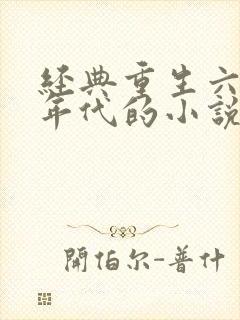 經典重生六
年代的小說
開伯尔-普什